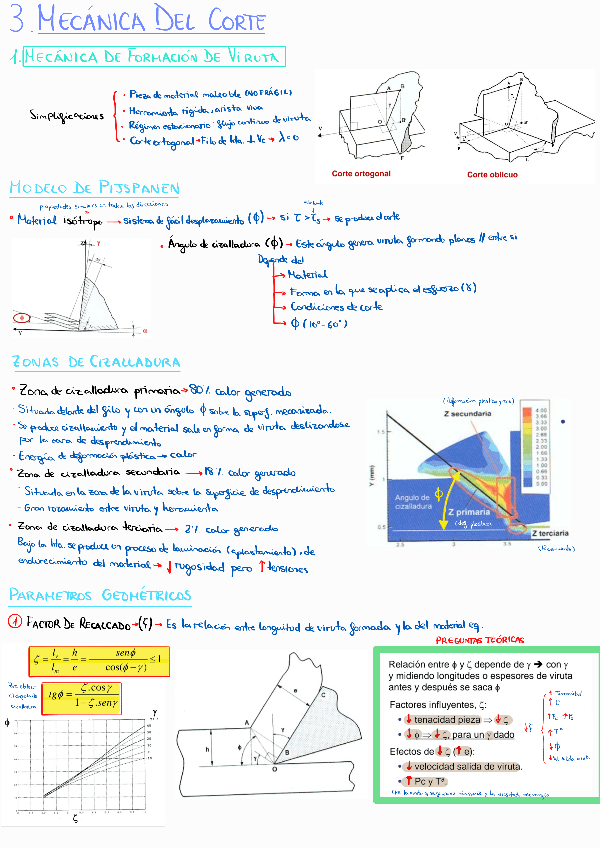 3. MECÁNICA DEL CORTE
1. MECÁNICA DE FORMACIÓN DE VIRUTA
Simplificaciones
• Pieza de material maleable (NO FRÁGIL)
• Herramienta rígida, arista viva
• Régimen estacionario - flujo continuo de viruta
• Corte ortogonal → Filo de hta. ⊥ Vc → λ=0
Corte ortogonal
Corte oblicuo
MODELO DE PIJSPANEN
propiedades similares en todas las direcciones
• Material isótropo → sistema de fácil desplazamiento (ϕ) → si τ > τs → se produce el corte
• Ángulo de cizalladura (ϕ) → Este ángulo genera viruta formando planos // entre si
Depende del
→ Material
→ Forma en la que se aplica el esfuerzo (γ)
→ Condiciones de corte
→ ϕ (10°-60°)
ZONAS DE CIZALLADURA
• Zona de cizalladura primaria → 80% calor generado
· Situada delante del filo y con un ángulo ϕ sobre la superf. mecanizada.
· Se produce cizallamiento y el material sale en forma de viruta deslizandose
por la cara de desprendimiento
· Energía de deformación plástica → calor
• Zona de cizalladura secundaria → 18% calor generado
· Situada en la zona de la viruta sobre la superficie de desprendimiento
· Gran rozamiento entre viruta y herramienta
• Zona de cizalladura terciaria → 2% calor generado
Bajo la hta. se produce un proceso de laminación (aplastamiento), de
endurecimiento del material → ↓ rugosidad pero ↑ tensiones
Z secundaria
4.00
3.66
3.33
3.00
2.66
2.33
2.00
1.66
1.33
1.00
0.66
0.33
0.05
Y (mm)
1.5
1.0
0.5
2.5
3
3.5
Angulo de
cizalladura
ϕ
Z primaria
(def. plástica)
Z terciaria
PARAMETROS GEOMÉTRICOS
① FACTOR DE RECALCADO → (ζ) → Es la relación entre longuitud de viruta formada y la del material eq.
PREGUNTAS TEÓRICAS
ζ = ls/lm = h/e = senϕ/cos(ϕ − γ) ≤ 1
tgϕ = ζ.cosγ/1 − ζ.senγ
ϕ
γ
ζ
h
e
A
B
O
Relación entre ϕ y ζ depende de γ ➔ con γ
y midiendo longitudes o espesores de viruta
antes y después se saca ϕ
Factores influyentes, ζ:
• ↓ tenacidad pieza ⇒ ↓ ζ
• ↓ υ ⇒ ↓ ζ, para un γ dado
Efectos de ↓ ζ (↑ e):
• ↓ velocidad salida de viruta.
• ↑ Pc y Tª